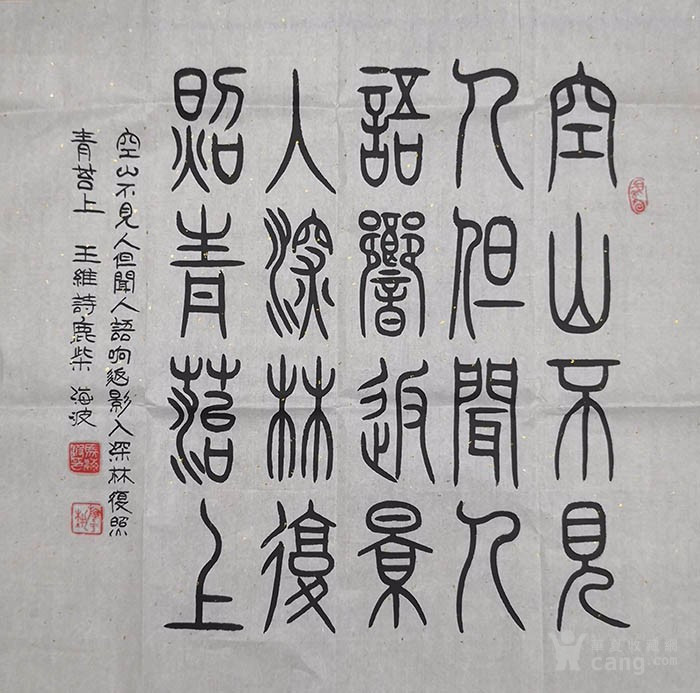 空山不見
人但聞人
語響返景
入深林復
照青苔上
空山不見人但聞人語响返影入深林復照
青苔上 王維詩鹿柴 海波
华夏收藏网
cang.com